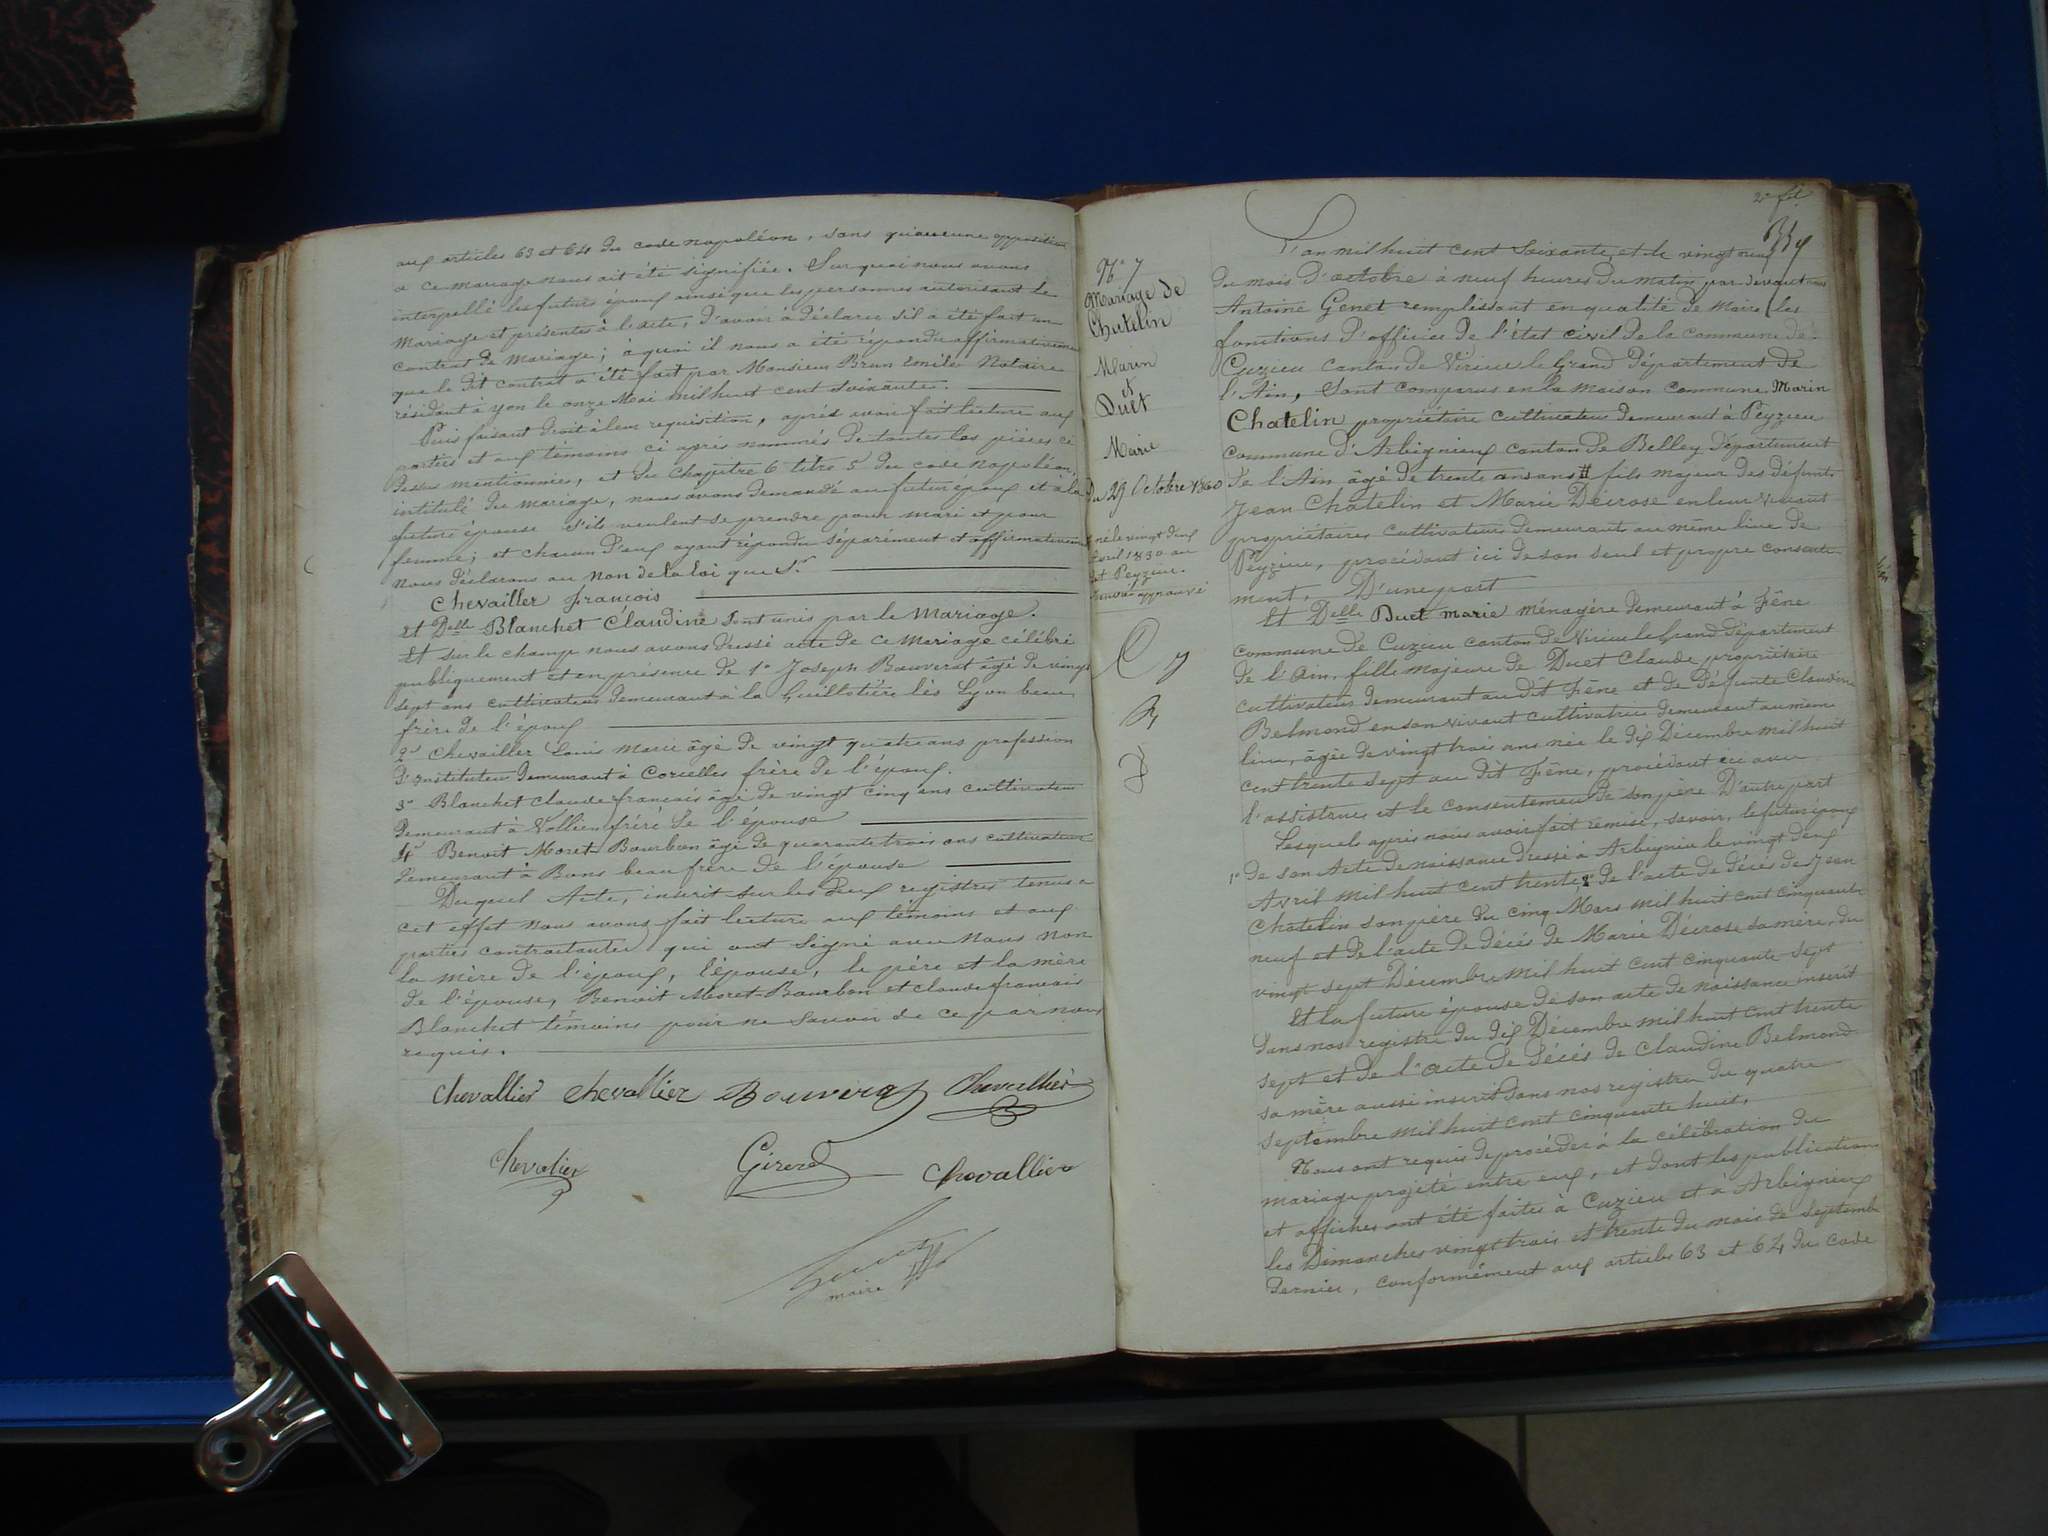 aux articles 63 et 64 du code napoléon, sans qu'aucune opposition
à ce mariage nous ait été signifiée. Sur quoi nous avons
interpellé les futurs époux ainsi que les personnes autorisant le
Mariage et présentes à l'acte, d'avoir à déclarer s'il a été fait un
contrat de Mariage; à quoi il nous a été répondu affirmativement
que le dit contrat a été fait par Monsieur Brun Emile Notaire
résidant à yon le onze Mai mil huit cent soixante.
Puis faisant droit à leur requisition, après avoir fait lecture aux
parties et aux témoins ci après nommés de toutes les pièces ci
dessus mentionnées, et du Chapitre 6 titre 5 du code napoléon,
intitulé du mariage, nous avons demandé au futur époux et à la
future épouse s'ils veulent se prendre pour mari et pour
femme; et chacun d'eux ayant répondu séparément et affirmativement
nous déclarons au nom de la Loi que Sr
Chevallier François
Et Delle Blanchet Claudine sont unis par le Mariage.
Et sur le champ nous avons dressé acte de ce mariage célébré
publiquement et en présence de 1° Joseph Bouverat âgé de vingt
sept ans cultivateur demeurant à la Guillotière lès Lyon beau
frère de l'époux
2° Chevallier Louis Marie âgé de vingt quatre ans profession
d'Instituteur demeurant à Corcelles frère de l'époux.
3° Blanchet Claude français âgé de vingt cinq ans cultivateur
demeurant à Vollien frère de l'épouse
4° Benoit Moret-Bourbon âgé de quarante trois ans cultivateur
demeurant à Bons beau frère de l'épouse
Duquel Acte, inscrit sur les deux registres tenus à
cet effet nous avons fait lecture aux témoins et aux
parties contractantes qui ont signé avec Nous Non
la mère de l'époux, l'épouse, le père et la mère
de l'épouse, Benoit Moret-Bourbon et Claude français
Blanchet témoins pour ne savoir de ce par nous
requis.
Chevallier Chevallier Bouverat Chevallier
Chevalier Girerd Chevallier
maire
N° 7
Mariage de
Chatelin
Marin
et
Duet
Marie
Du 29 Octobre 1860
né le vingt deux
avril 1830 au
dit Peyzieu.
renvoi approuvé
2e fet
L'an mil huit cent soixante et le vingt neuf
du mois d'octobre à neuf heures du matin par devant nous
Antoine Genet remplissant en qualité de Maire les
fonctions d'officier de l'état civil de la commune de
Cuzieu canton de Virieu le Grand Département de
l'Ain, Sont comparus en la maison commune Marin
Chatelin propriétaire cultivateur demeurant à Peyzieu
commune d'Arbignieu canton de Belley Département
de l'Ain âgé de trente ans # fils majeur des défunts
Jean Chatelin et Marie Décrose en leur vivant
propriétaires cultivateurs demeurant au même lieu de
Peyzieu, procédant ici de son seul et propre consente
ment, D'une part
Et Delle Duet Marie ménagère demeurant à Fêne
commune de Cuzieu canton de Virieu le Grand département
de l'Ain, fille majeure de Duet Claude propriétaire
cultivateur demeurant au dit Fêne et de défunte Claudine
Belmond en son vivant cultivatrice demeurant au même
lieu, âgée de vingt trois ans née le dix Décembre mil huit
cent trente sept au dit Fêne, procédant ici avec
l'assistance et le consentement de son père D'autre part
Lesquels après nous avoir fait remise, savoir, le futur époux
1° de son Acte de naissance dressé à Arbignieu le vingt deux
Avril mil huit cent trente, 2° de l'acte de décès de Jean
Chatelin son père du cinq Mars mil huit cent cinquante
neuf et de l'acte de décès de Marie Décrose sa mère, du
vingt sept Décembre mil huit cent cinquante-sept
Et la future épouse de son acte de naissance inscrit
dans nos registre du dix Décembre mil huit cent trente
sept et de l'acte de décès de Claudine Belmond
sa mère aussi inscrit dans nos registres du quatre
Septembre mil huit cent cinquante huit,
Nous ont requis de procéder à la célébration du
mariage projeté entre eux, et dont les publications
et affiches ont été faites à Cuzieu et à Arbignieu
les Dimanches vingt trois et trente du mois de septembre
dernier, conformément aux articles 63 et 64 du code